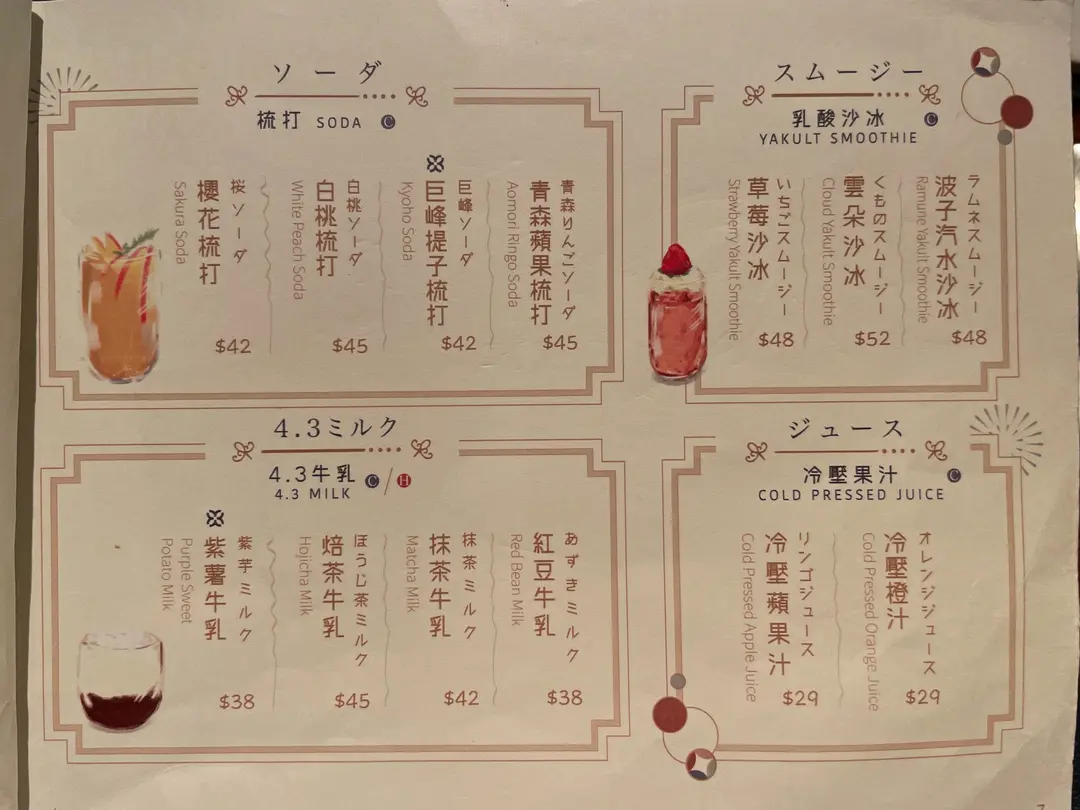 ソーダ
梳打 SODA C
青森りんごソーダ
青森蘋果梳打
Aomori Ringo Soda
$45
巨峰ソーダ
巨峰提子梳打
Kyoho Soda
$42
白桃ソーダ
白桃梳打
White Peach Soda
$45
桜ソーダ
櫻花梳打
Sakura Soda
$42
スムージー
乳酸沙冰 C
YAKULT SMOOTHIE
ラムネスムージー
波子汽水沙冰
Ramune Yakult Smoothie
$48
くものスムージー
雲朵沙冰
Cloud Yakult Smoothie
$52
いちごスムージー
草莓沙冰
Strawberry Yakult Smoothie
$48
4.3ミルク
4.3牛乳 C/H
4.3 MILK
あずきミルク
紅豆牛乳
Red Bean Milk
$38
抹茶ミルク
抹茶牛乳
Matcha Milk
$42
ほうじ茶ミルク
焙茶牛乳
Hojicha Milk
$45
紫芋ミルク
紫薯牛乳
Purple Sweet
Potato Milk
$38
ジュース
冷壓果汁 C
COLD PRESSED JUICE
オレンジジュース
冷壓橙汁
Cold Pressed Orange Juice
$29
リンゴジュース
冷壓蘋果汁
Cold Pressed Apple Juice
$29